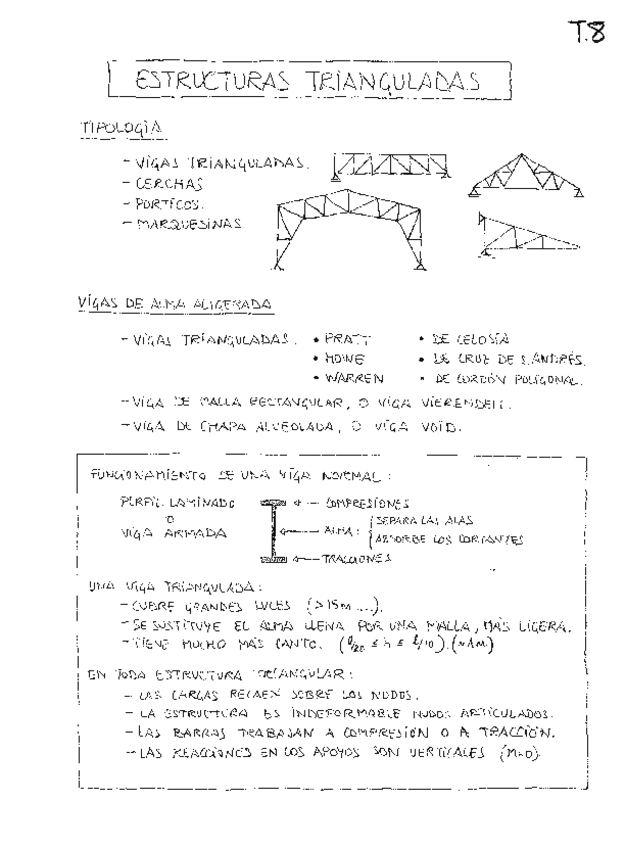 T.8
ESTRUCTURAS TRIANGULADAS
TIPOLOGÍA
- VIGAS TRIANGULADAS.
- CERCHAS
- PORTICOS.
- MARQUESINAS
VIGAS DE ALMA ALIGERADA
- VIGAS TRIANGULADAS. • PRATT • DE CELOSÍA
• HOWE • DE CRUZ DE S. ANDRÉS.
• WARREN • DE CORDÓN POLIGONAL.
- VIGA DE MALLA RECTANGULAR, O VIGA VIERENDELL.
- VIGA DE CHAPA ALVEOLADA, O VIGA VOID.
FUNCIONAMIENTO DE UNA VIGA NORMAL:
PERFIL LAMINADO ← COMPRESIONES
O
VIGA ARMADA ← ALMA: SEPARA LAS ALAS
ABSORBE LOS CORTANTES
← TRACCIONES
UNA VIGA TRIANGULADA:
- CUBRE GRANDES LUCES (>15m ....).
- SE SUSTITUYE EL ALMA LLENA POR UNA MALLA, MÁS LIGERA.
- TIENE MUCHO MÁS CANTO. (l/20 ≤ h ≤ l/10).
EN TODA ESTRUCTURA TRIANGULAR:
- LAS CARGAS RECAEN SOBRE LOS NUDOS.
- LA ESTRUCTURA ES INDEFORMABLE NUDOS ARTICULADOS.
- LAS BARRAS TRABAJAN A COMPRESIÓN O A TRACCIÓN.
- LAS REACCIONES EN LOS APOYOS SON VERTICALES (M=0).